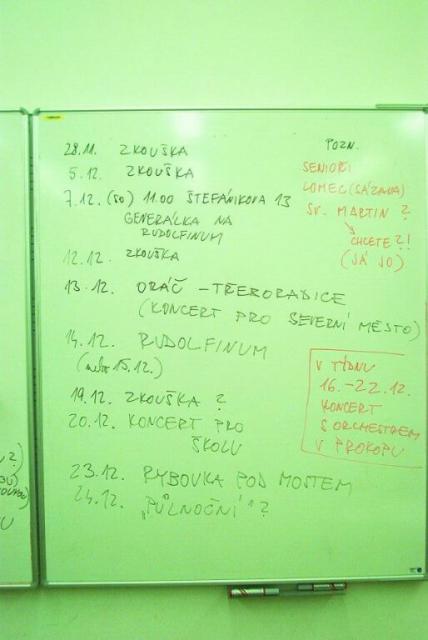 28.11. ZKOUŠKA
5.12. ZKOUŠKA
7.12. (SO) 11.00 ŠTEFÁNIKOVA 13
GENERÁLKA NA
RUDOLFINUM
12.12. ZKOUŠKA
13.12. ORÁČ - TŘEBORADICE
(KONCERT PRO SEVERNÍ MĚSTO)
14.12. RUDOLFINUM
(nebo 15.12.)
19.12. ZKOUŠKA ?
20.12. KONCERT PRO
ŠKOLU
23.12. RYBOVKA POD MOSTEM
24.12. „PŮLNOČNÍ" ?
POZN.
SENIOŘI
LOMEC (SÁZAVA)
SV. MARTIN ?
CHCETE ?!
(JÁ JO)
V TÝDNU
16.-22.12.
KONCERT
S ORCHESTREM
V PROKOPU